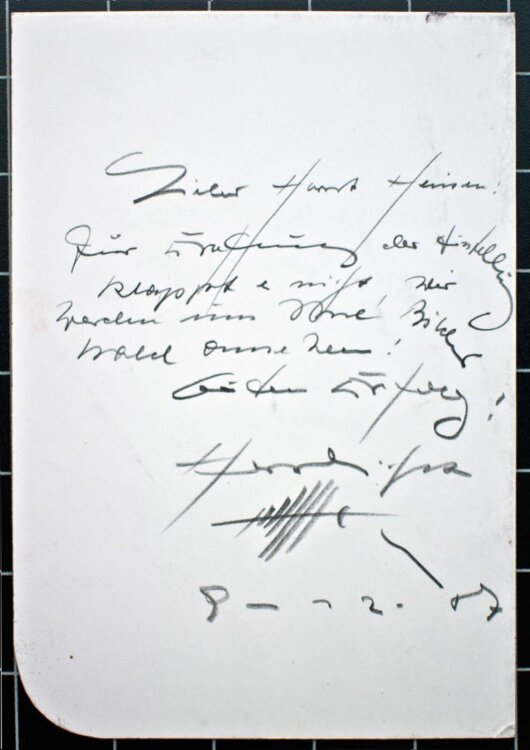 Lieber Horst Heinsen!
Zur Eröffnung der Ausstellung
klappt e nicht, wir
werden uns Ihre Bilder
bald ansehen!
Guten Erfolg!
Herzlichst
87